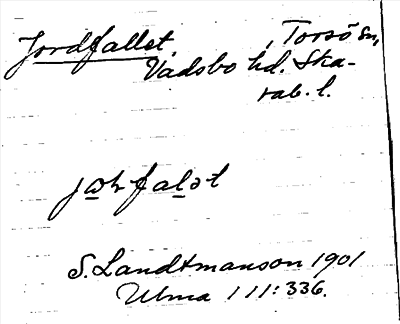 Jordfallet, Torsö sn,
Vadsbo hd. Ska-
rab. l.
S. Landtmanson 1901
Ulma 111:336.